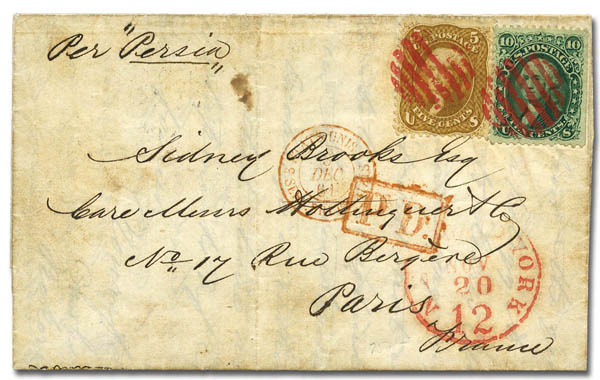 Per "Persia"
5 5
U.S. POSTAGE
FIVE CENTS
U S
10 10
U.S. POSTAGE
TEN CENTS
U S
Sidney Brooks Esq
DEC
Care Messrs Hottinguer & Co
P.D.
No 17 Rue Bergère
Paris
France
YORK
NOV
20
12